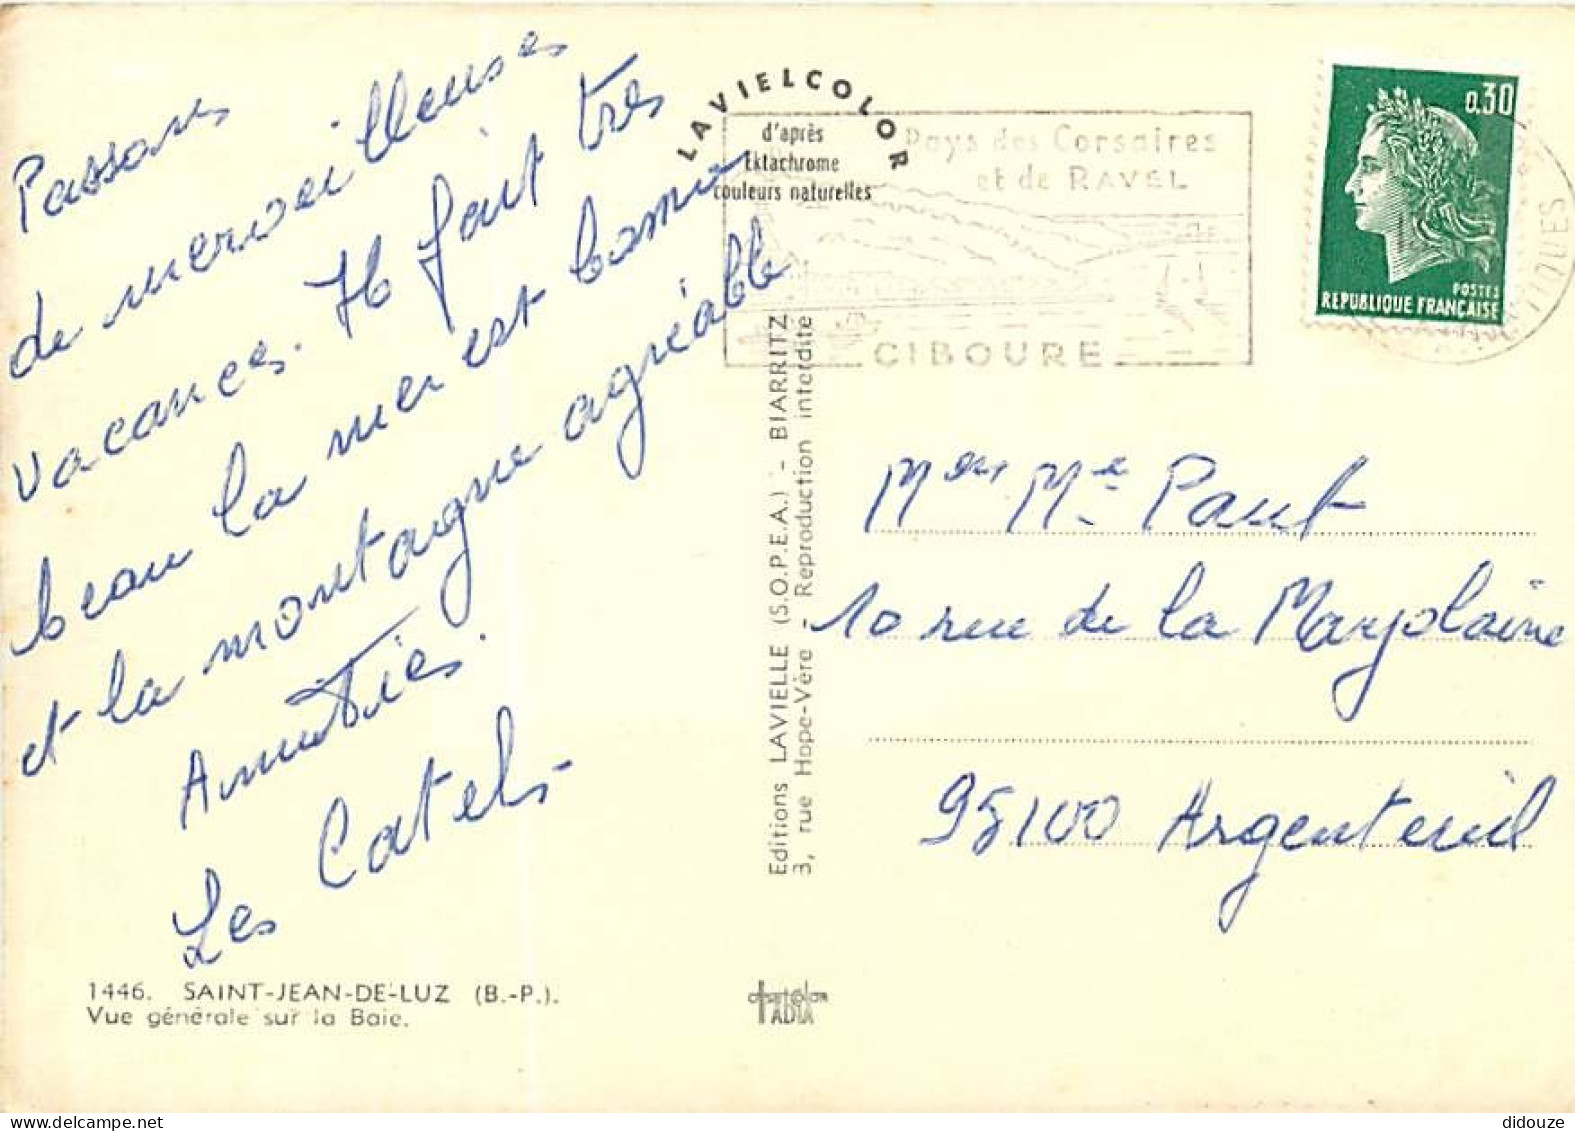 Passons
de merveilleuses
vacances. Il fait très
beau la mer est bonne
et la montagne agréable
Amitiés.
Les Catels
1446. SAINT-JEAN-DE-LUZ (B.-P.).
Vue générale sur la Baie.
LAVIELCOLOR
d'après
Ektachrome
couleurs naturelles
Pays des Corsaires
et de RAVEL
CIBOURE
0,30
POSTES
REPUBLIQUE FRANÇAISE
Editions LAVIELLE (S.O.P.E.A.) - BIARRITZ
3, rue Hope-Vère - Reproduction interdite
Mr Me
10 rue de la Marjolaine
95100 Argenteuil
didouze